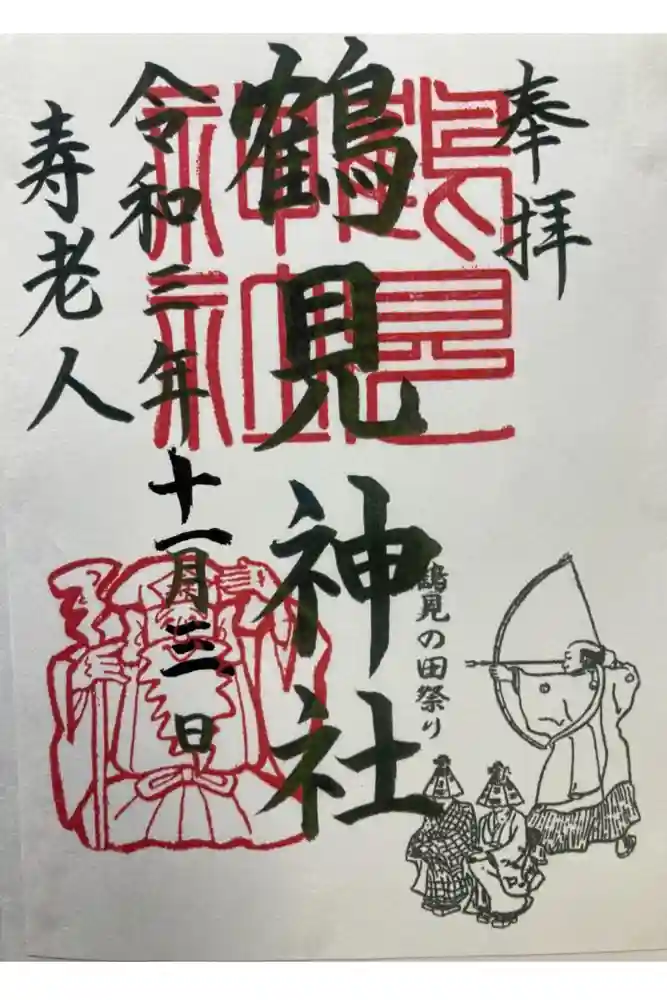 奉拝
鶴見神社
鶴見神社
鶴見の田祭り
令和三年十一月三日
寿老人